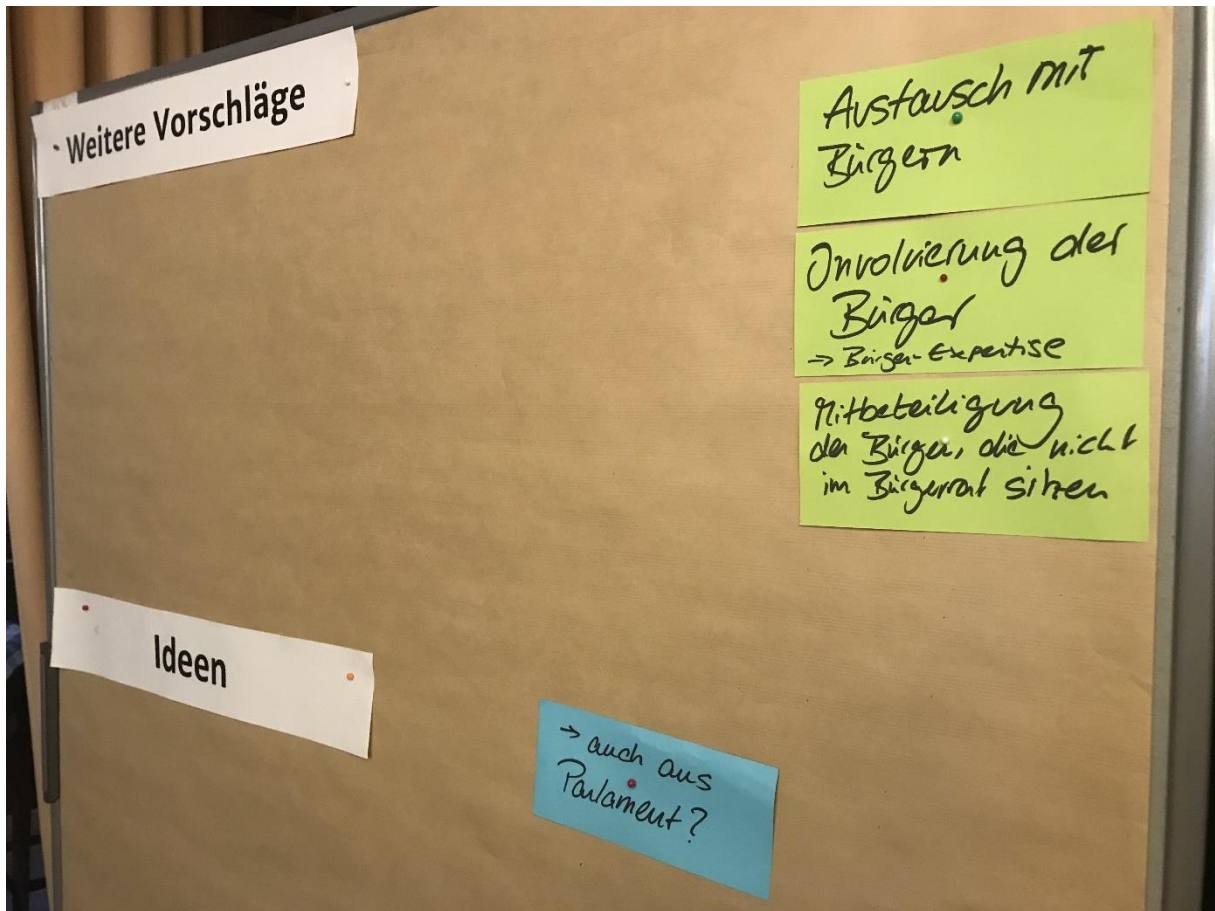 Weitere Vorschläge
Austausch mit
Bürgern
Involvierung der
Bürger
→ Bürger-Expertise
Mitbeteiligung
der Bürger, die nicht
im Bürgerrat sitzen
Ideen
→ auch aus
Parlament?